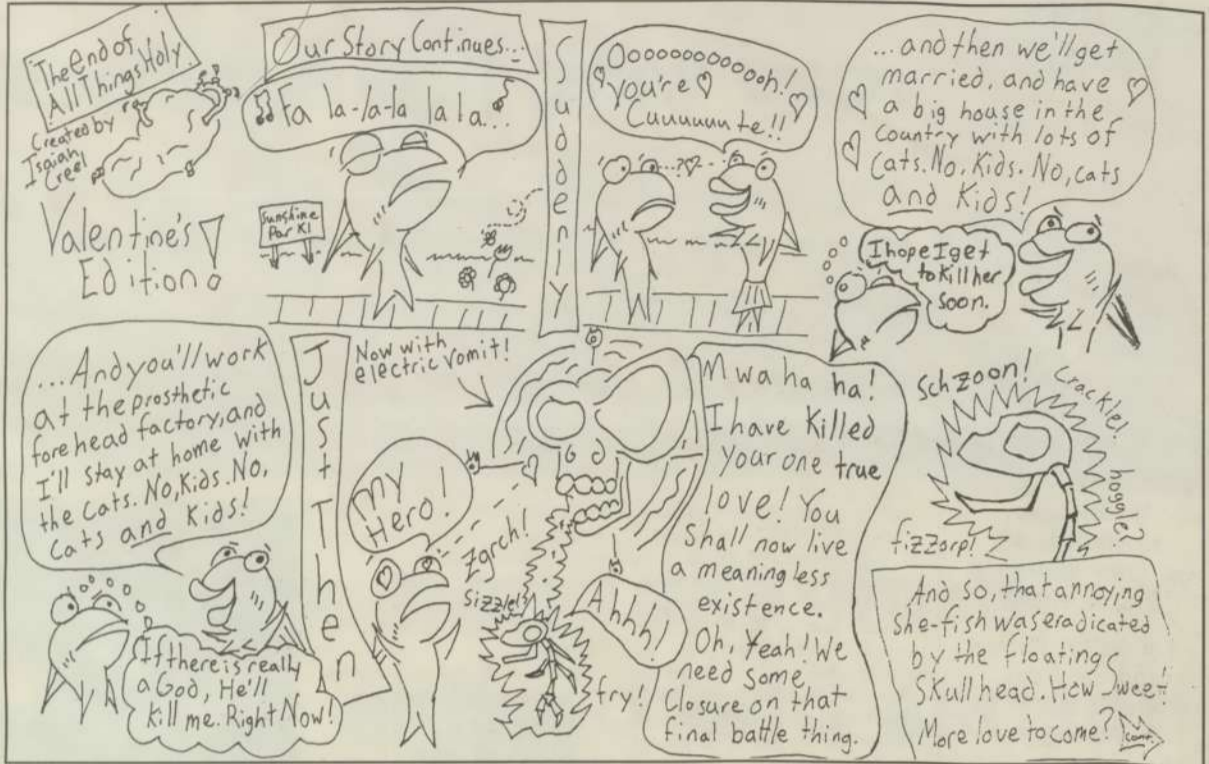 The End of
All Things Holy
Created by
Isaiah
Creel
Valentine's
Edition!
Our Story Continues...
Fa la-la-la la la...
Sunshine
Park!
Suddenly
Ooooooooooooh!
You're
Cuuuuuute!!
...?
...and then we'll get
married, and have
a big house in the
country with lots of
cats. No, Kids. No, cats
and Kids!
I hope I get
to Kill her
Soon.
...And you'll work
at the prosthetic
forehead factory, and
I'll stay at home with
the cats. No, Kids. No,
Cats and Kids!
If there is really
a God, He'll
Kill me. Right Now!
Just Then
Now with
electric vomit!
My
Hero!
Zgrch!
Sizzle!
fry!
Ahhh!
Mwa ha ha!
I have Killed
your one true
love! You
Shall now live
a meaningless
existence.
Oh, Yeah! We
need some
Closure on that
final battle thing.
Schzoon!
Crackle!
hoggle?
fizzorp!
And so, that annoying
she-fish was eradicated
by the floating
Skull head. How Sweet!
More love to come?
cont.